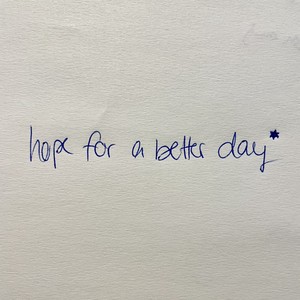 hope for a better day*